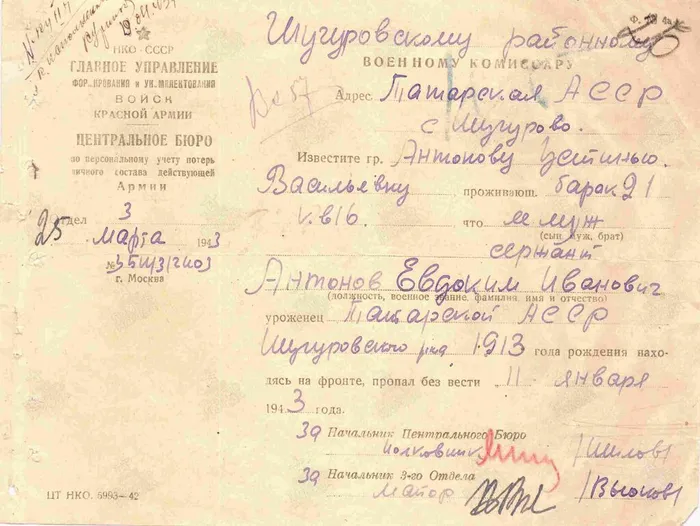 Ф. № 4
НКО-СССР
ГЛАВНОЕ УПРАВЛЕНИЕ
ФОРМИРОВАНИЯ И УКОМПЛЕКТОВАНИЯ
ВОЙСК
КРАСНОЙ АРМИИ
ЦЕНТРАЛЬНОЕ БЮРО
по персональному учету потерь
личного состава действующей
Армии
отдел 3
25 марта 1943
г. Москва
Шугуровскому районному
ВОЕННОМУ КОМИССАРУ
Адрес: Татарская АССР
с Шугурово.
Известите гр. Антонову Устинью
Васильевну проживающ. барак 21
кв 16 что муж
(сын, муж, брат)
сержант
Антонов Евдоким Иванович
(должность, военное звание, фамилия, имя и отчество)
уроженец Татарской АССР
Шугуровского р-на 1913 года рождения нахо-
дясь на фронте, пропал без вести 11 января
1943 года.
За Начальник Центрального Бюро
полковник /Шилов/
За Начальник 3-го Отдела
майор /Высоков/
ЦТ НКО. 6993—42